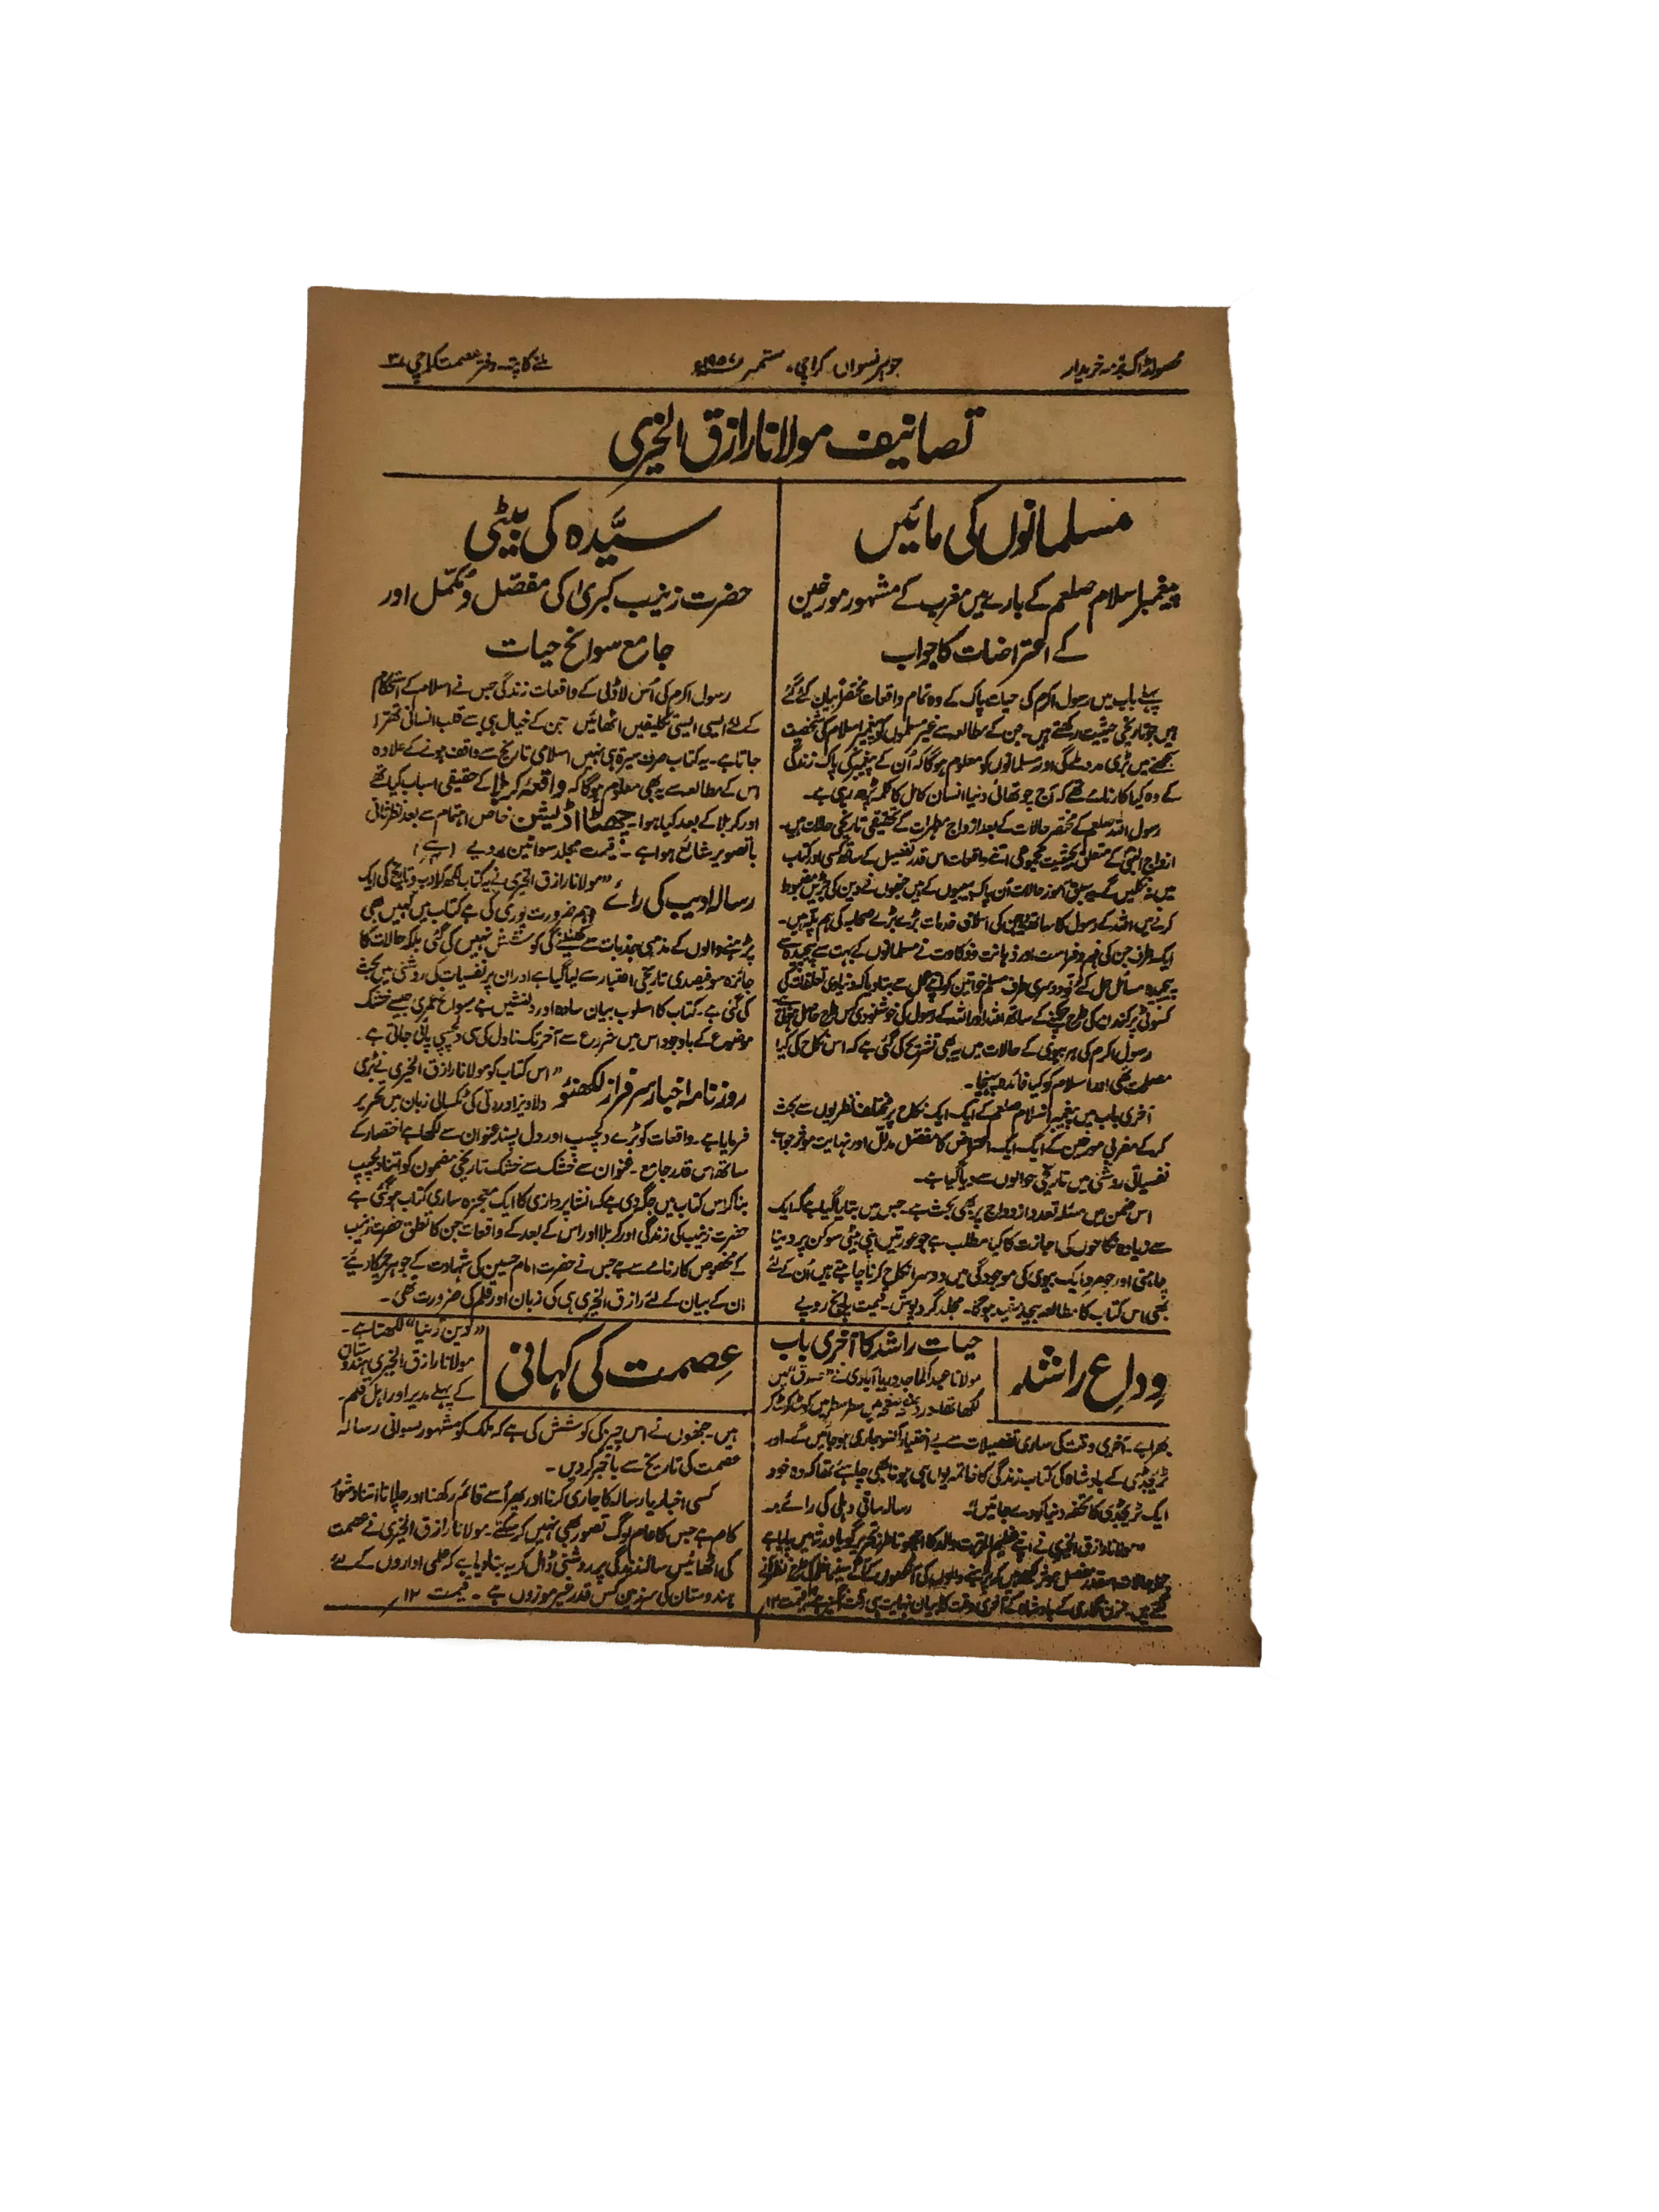 محصولڈاک بذمہ خریدار
جوہر نسواں کراچی۔ ستمبر ۱۹۵۷ء
ملنے کا پتہ۔ دفتر عصمت کراچی ۳
تصانیف مولانا رازق الخیری
مسلمانوں کی مائیں
پیغمبر اسلام صلعم کے بارے میں مغرب کے مشہور مورخین
کے اعتراضات کا جواب
پہلے باب میں رسول اکرم کی حیات پاک کے وہ تمام واقعات مختصراً بیان کئے گئے
ہیں جو تاریخی حیثیت رکھتے ہیں۔ جن کے مطالعہ سے غیر مسلموں کو پیغمبر اسلام کی شخصیت
سمجھنے میں بڑی مدد ملے گی اور مسلمانوں کو معلوم ہوگا کہ اُن کے پیغمبر کی پاک زندگی
کے وہ کیا کارنامے تھے کہ آج چوتھائی دنیا انسان کامل کا کلمہ پڑھ رہی ہے۔
رسول اللہ صلعم کے مختصر حالات کے بعد ازواج مطہرات کے تحقیقی تاریخی حالات ہیں۔
ازواج النبی کے متعلق بحیثیت مجموعی اتنے واقعات اس قدر تفصیل کے ساتھ کسی اور کتاب
میں نہ ملیں گے۔ یہ سبق آموز حالات اُن پاک بیبیوں کے ہیں جنھوں نے دین کی جڑیں مضبوط
کرنے میں اللہ کے رسول کا ساتھ دیا جن کی اسلامی خدمات بڑے بڑے صحابہ کی ہم پلہ ہیں۔
ایک طرف جن کی فہم و فراست اور ذہانت و ذکاوت نے مسلمانوں کے بہت سے پیچیدہ سے
پیچیدہ مسائل حل کئے تو دوسری طرف مسلم خواتین کو اپنے عمل سے بتا دیا کہ دنیاوی تعلقات کی
کسوٹی پر کندن کی طرح چمکنے کے ساتھ اللہ اور اللہ کے رسول کی خوشنودی کس طرح حاصل ہوتی ہے
رسول اکرم کی ہر بیوی کے حالات میں یہ بھی تشریح کی گئی ہے کہ اس نکاح کی کیا
مصلحت تھی اور اسلام کو کیا فائدہ پہنچا۔
آخری باب میں پیغمبر اسلام صلعم کے ایک ایک نکاح پر مختلف نظریوں سے بحث
کر کے مغربی مورخین کے ایک ایک اعتراض کا مفصل مدلل اور نہایت موثر جواب
نفسیاتی روشنی میں تاریخی حوالوں سے دیا گیا ہے۔
اس ضمن میں مسئلہ تعدد ازدواج پر بھی بحث ہے۔ جس میں بتایا گیا ہے کہ ایک
سے زیادہ نکاحوں کی اجازت کا کیا مطلب ہے جو عورتیں اپنی بیٹی سوکن پر دینا
چاہتی اور جو مرد ایک بیوی کی موجودگی میں دوسرا نکاح کرنا چاہتے ہیں اُن کے لئے
بھی اس کتاب کا مطالعہ بیحد مفید ہوگا۔ مجلد گرد پوش۔ قیمت پانچ روپے
سیّدہ کی بیٹی
حضرت زینب کبریٰ کی مفصّل و مکمّل اور
جامع سوانح حیات
رسول اکرم کی اُس لاڈلی کے واقعات زندگی جس نے اسلام کے استحکام
کے لئے ایسی ایسی تکلیفیں اٹھائیں جن کے خیال ہی سے قلب انسانی تھرا
جاتا ہے۔ یہ کتاب صرف سیرۃ ہی نہیں اسلامی تاریخ سے واقف ہونے کے علاوہ
اس کے مطالعہ سے یہ بھی معلوم ہوگا کہ واقعہ کربلا کے حقیقی اسباب کیا تھے
اور کربلا کے بعد کیا ہوا۔ چھٹا اڈیشن خاص اہتمام سے بعد نظر ثانی
باتصویر شائع ہوا ہے۔ قیمت مجلد سوا تین روپے
رسالہ ادیب کی رائے
"مولانا رازق الخیری نے یہ کتاب لکھ کر ادب و تاریخ کی ایک
اہم ضرورت پوری کی ہے کتاب میں کہیں بھی
پڑھنے والوں کے مذہبی جذبات سے کھیلنے کی کوشش نہیں کی گئی بلکہ حالات کا
جائزہ سو فیصدی تاریخی اعتبار سے لیا گیا ہے اور ان پر نفسیات کی روشنی میں بحث
کی گئی ہے۔ کتاب کا اسلوب بیان سادہ اور دلنشیں ہے سوانح عمری جیسے خشک
موضوع کے باوجود اس میں شروع سے آخر تک ناول کی سی دلچسپی پائی جاتی ہے۔
روزنامہ اخبار سرفراز لکھنئو
"اس کتاب کو مولانا رازق الخیری نے بڑی
دلآویز اور دلی کی ٹکسالی زبان میں تحریر
فرمایا ہے۔ واقعات کو بڑے دلچسپ اور دل پسند عنوان سے لکھا ہے اختصار کے
ساتھ اس قدر جامع۔ عنوان سے خشک سے خشک تاریخی مضمون کو اتنا دلچسپ
بنا کر اس کتاب میں جگہ دی ہے کہ انشا پردازی کا ایک معجزہ ساری کتاب ہوگئی ہے
حضرت زینب کی زندگی اور کربلا اور اس کے بعد کے واقعات جن کا تعلق حضرت زینب
کے مخصوص کارنامے سے ہے جس نے حضرت امام حسین کی شہادت کے جوہر چمکا دیئے۔
ان کے بیان کے لئے رازق الخیری ہی کی زبان اور قلم کی ضرورت تھی۔
وداعِ راشد
حیات راشد کا آخری باب
مولانا عبدالماجد دریا آبادی نے "صدق" میں
لکھا تھا۔ درد و غم صفحہ میں سطر سطر میں کوٹ کوٹ کر
بھرا ہے۔ آخری وقت کی ساری تفصیلات سے بے اختیار آنسو جاری ہو جائیں گے۔ اور
ٹریجڈی کے بادشاہ کی کتاب زندگی کا خاتمہ یوں ہی ہونا بھی چاہئے تھا کہ وہ خود
ایک ٹریجڈی کا تحفہ دنیا کو دے جائیں"۔ رسالہ ساقی دہلی کی رائے:۔
"مولانا رازق الخیری نے اپنے عظیم المرتبت والد کا اچھوتا طرز تحریر گویا ورثہ میں پایا ہے
عصمت کی کہانی
"دین دنیا" لکھتا ہے۔
مولانا رازق الخیری ہندوستان
کے پہلے مدیر اور اہل قلم۔
ہیں۔ جنھوں نے اس چیز کی کوشش کی ہے کہ ملک کو مشہور نسوانی رسالہ
عصمت کی تاریخ سے باخبر کر دیں۔
کسی اخبار یا رسالہ کا جاری کرنا اور پھر اُسے قائم رکھنا اور چلانا اتنا دشوار
کام ہے جس کا عام لوگ تصور بھی نہیں کر سکتے۔ مولانا رازق الخیری نے عصمت
کی اٹھائیس سالہ زندگی پر روشنی ڈال کر یہ بتا دیا ہے کہ علمی اداروں کے لئے
ہندوستان کی سرزمین کس قدر غیر موزوں ہے۔ قیمت ۱۲/